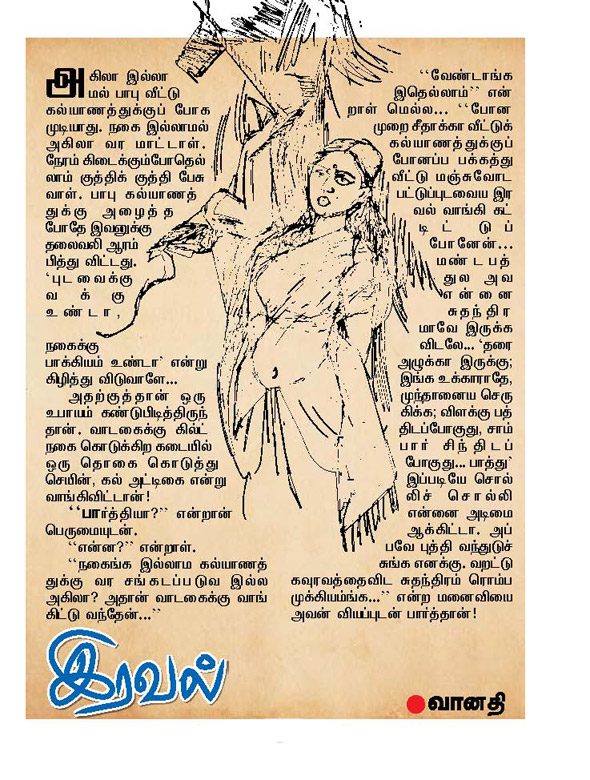 அகிலா இல்லா
மல் பாபு வீட்டு
கல்யாணத்துக்குப் போக
முடியாது. நகை இல்லாமல்
அகிலா வர மாட்டாள்.
நேரம் கிடைக்கும்போதெல்
லாம் குத்திக் குத்தி பேசு
வாள். பாபு கல்யாணத்
துக்கு அழைத்த
போதே இவனுக்கு
தலைவலி ஆரம்
பித்து விட்டது.
'புடவைக்கு
வக்கு
உண்டா,
நகைக்கு
பாக்கியம் உண்டா' என்று
கிழித்து விடுவாளே...
அதற்குத்தான் ஒரு
உபாயம் கண்டுபிடித்திருந்
தான். வாடகைக்கு கில்ட்
நகை கொடுக்கிற கடையில்
ஒரு தொகை கொடுத்து
செயின், கல் அட்டிகை என்று
வாங்கிவிட்டான்!
"பார்த்தியா?" என்றான்
பெருமையுடன்.
"என்ன?" என்றாள்.
"நகைங்க இல்லாம கல்யாணத்
துக்கு வர சங்கடப்படுவ இல்ல
அகிலா? அதான் வாடகைக்கு வாங்
கிட்டு வந்தேன்..."
"வேண்டாங்க
இதெல்லாம்" என்
றாள் மெல்ல... "போன
முறை சீதாக்கா வீட்டுக்
கல்யாணத்துக்குப்
போனப்ப பக்கத்து
வீட்டு மஞ்சுவோட
பட்டுப்புடவைய இர
வல் வாங்கி கட்
டிட்டுப்
போனேன்...
மண்டபத்
துல அவ
என்னை
சுதந்திர
மாவே இருக்க
விடலே... 'தரை
அழுக்கா இருக்கு;
இங்க உக்காராதே,
முந்தானைய செரு
கிக்க; விளக்கு பத்
திடப்போகுது, சாம்
பார் சிந்திடப்
போகுது... பாத்து'
இப்படியே சொல்
லிச் சொல்லி
என்னை அடிமை
ஆக்கிட்டா. அப்
பவே புத்தி வந்துடுச்
சுங்க எனக்கு. வறட்டு
கவுரவத்தைவிட சுதந்திரம் ரொம்ப
முக்கியம்ங்க..." என்ற மனைவியை
அவன் வியப்புடன் பார்த்தான்!
இரவல்
வானதி